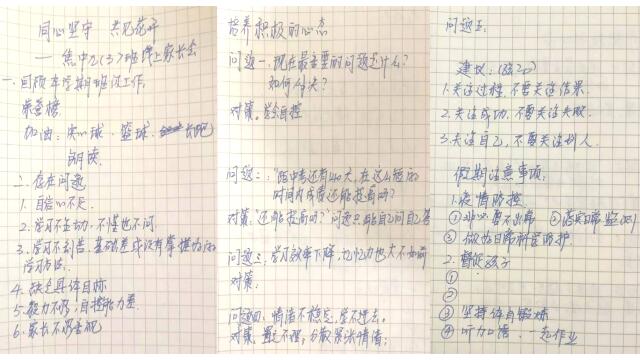 同心坚守 共见花开
——焦中2(3)班线上家长会
一、回顾本学期班级工作.
荣誉榜.
加油：实心球、篮球、
朗读.
二、存在问题
1. 自信心不足.
2. 学习不主动,不懂也不问.
3. 学习不刻苦,基础差或没有掌握好的
学习方法.
4. 缺乏具体目标
5. 毅力不够,自控能力差.
6. 家长不够重视
培养积极的心态
问题一、现在最主要的问题是什么?
如何解决?
对策.学会自控
问题二：“距中考还有400天,在这么短的
时间内成绩还能提高吗?
对策：“还能提高吗?”问题只能自己问自己答
问题三、学习效率下降,记忆力也大不如前
对策：
问题四、情绪不稳定,坐不进去.
对策.置之不理,分散紧张情绪;
问题五:
建议：
1.关注过程,不要关注结果.
2.关注成功,不要关注失败.
3.关注自己,不要关注别人.
假期注意事项：
1.疫情防控.
①非必要不出 ②落实日常监测
③做好日常科学防护.
2.督促孩子
①
②
③ 坚持体育锻炼
④ 听力口语、一起作业